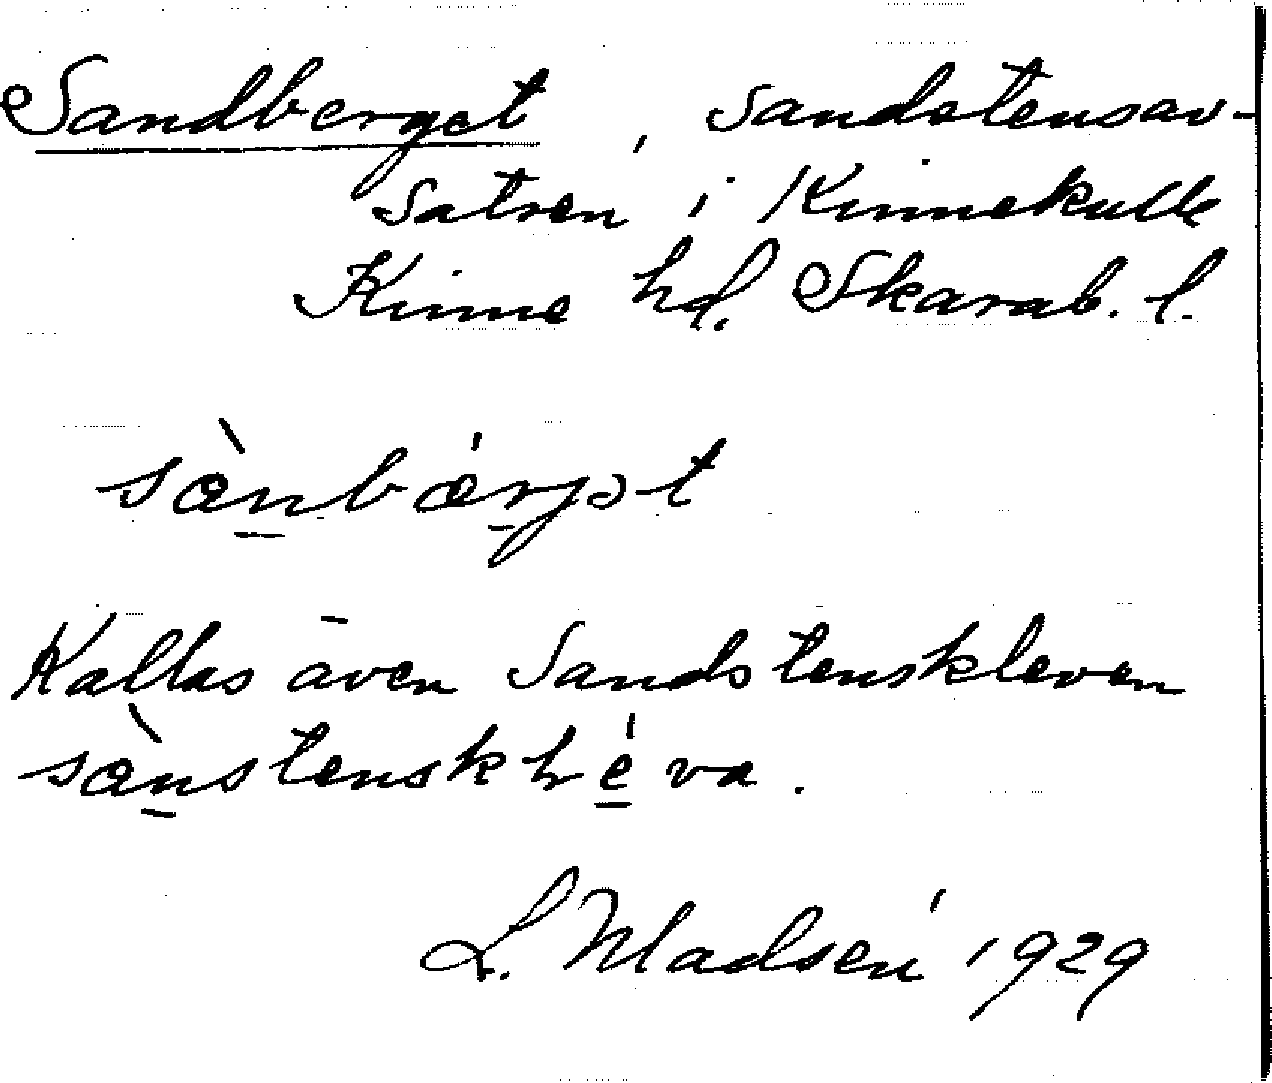 Sandberget, Sandstensav-
satsen i Kinnekulle
Kinne hd. Skarab. l.
sànbærjət
Kallas även Sandstenskleven
sànstensklléva.
L. Madsén 1929